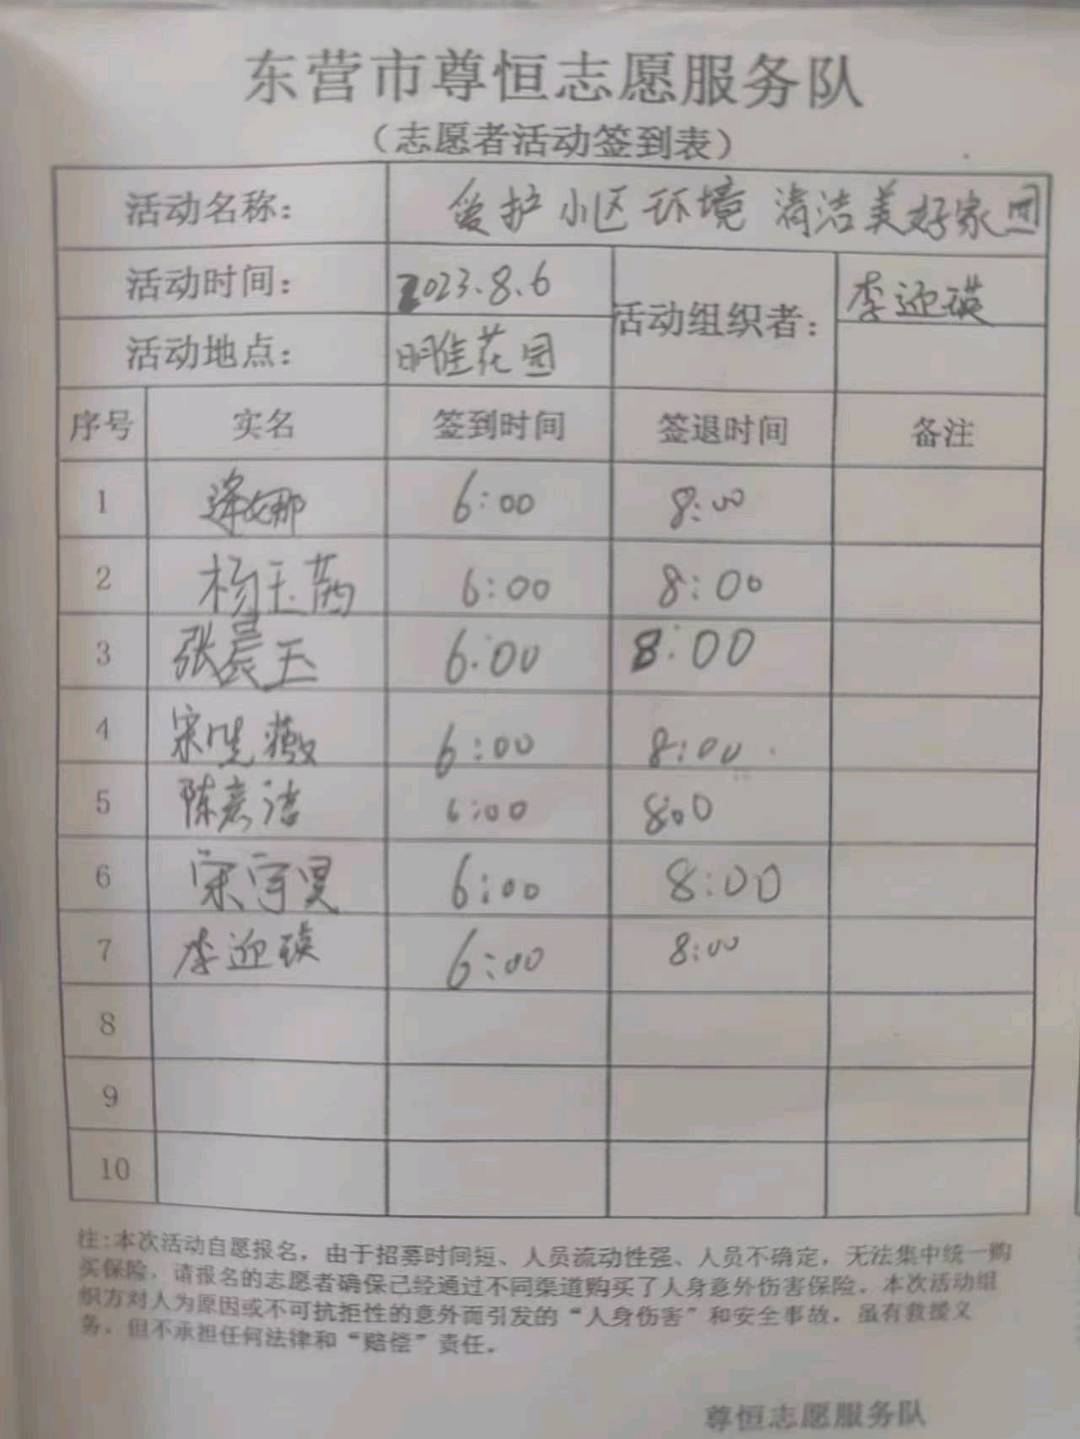 东营市尊恒志愿服务队
（志愿者活动签到表）
活动名称： 爱护小区环境 清洁美好家园
活动时间： 2023.8.6 活动组织者： 李迎瑛
活动地点： 明佳花园
序号 实名 签到时间 签退时间 备注
1 逄娜 6:00 8:00
2 杨玉茜 6:00 8:00
3 张晨玉 6:00 8:00
4 宋 薇 6:00 8:00
5 陈 洁 6:00 8:0
6 宋宇昊 6:00 8:00
7 李迎瑛 6:00 8:00
8
9
10
注:本次活动自愿报名，由于招募时间短、人员流动性强、人员不确定，无法集中统一购
买保险，请报名的志愿者确保已经通过不同渠道购买了人身意外伤害保险。本次活动组
织方对人为原因或不可抗拒性的意外而引发的“人身伤害”和安全事故，虽有救援义
务，但不承担任何法律和“赔偿”责任。
尊恒志愿服务队